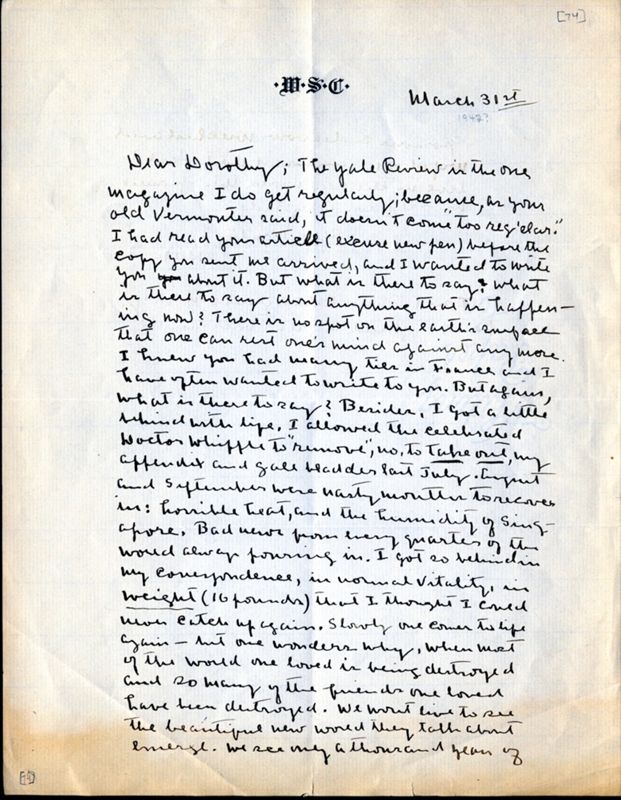 [74]
·W·S·C·
March 31st
1942?
Dear Dorothy; The Yale Review is the one
magazine I do get regularly; because, as your
old Vermonter said, it doesn't come "too reg'elar."
I had read your article (excuse new pen) before the
copy you sent me arrived, and I wanted to write
you about it. But what is there to say? What
is there to say about anything that is happen-
ing now? There is no spot on the earth's surface
that one can rest one's mind against any more.
I knew you had many ties in France and I
have often wanted to write to you. But again,
what is there to say? Besides, I got a little
behind with life. I allowed the celebrated
Doctor Whipple to "remove", no, to take out, my
appendix and gale bladder last July. August
and September were nasty months to recover
in: horrible heat, and the humidity of Sing-
apore. Bad news from every quarter of the
world always pouring in. I got so behind in
my correspondence, in normal vitality, in
weight (16 pounds) that I thought I could
never catch up again. Slowly one comes to life
again — but one wonders why, when most
of the world one loved is being destroyed
and so many of the friends one loved
have been destroyed. We wont live to see
the beautiful new world they talk about
emerge. We see only a thousand years of